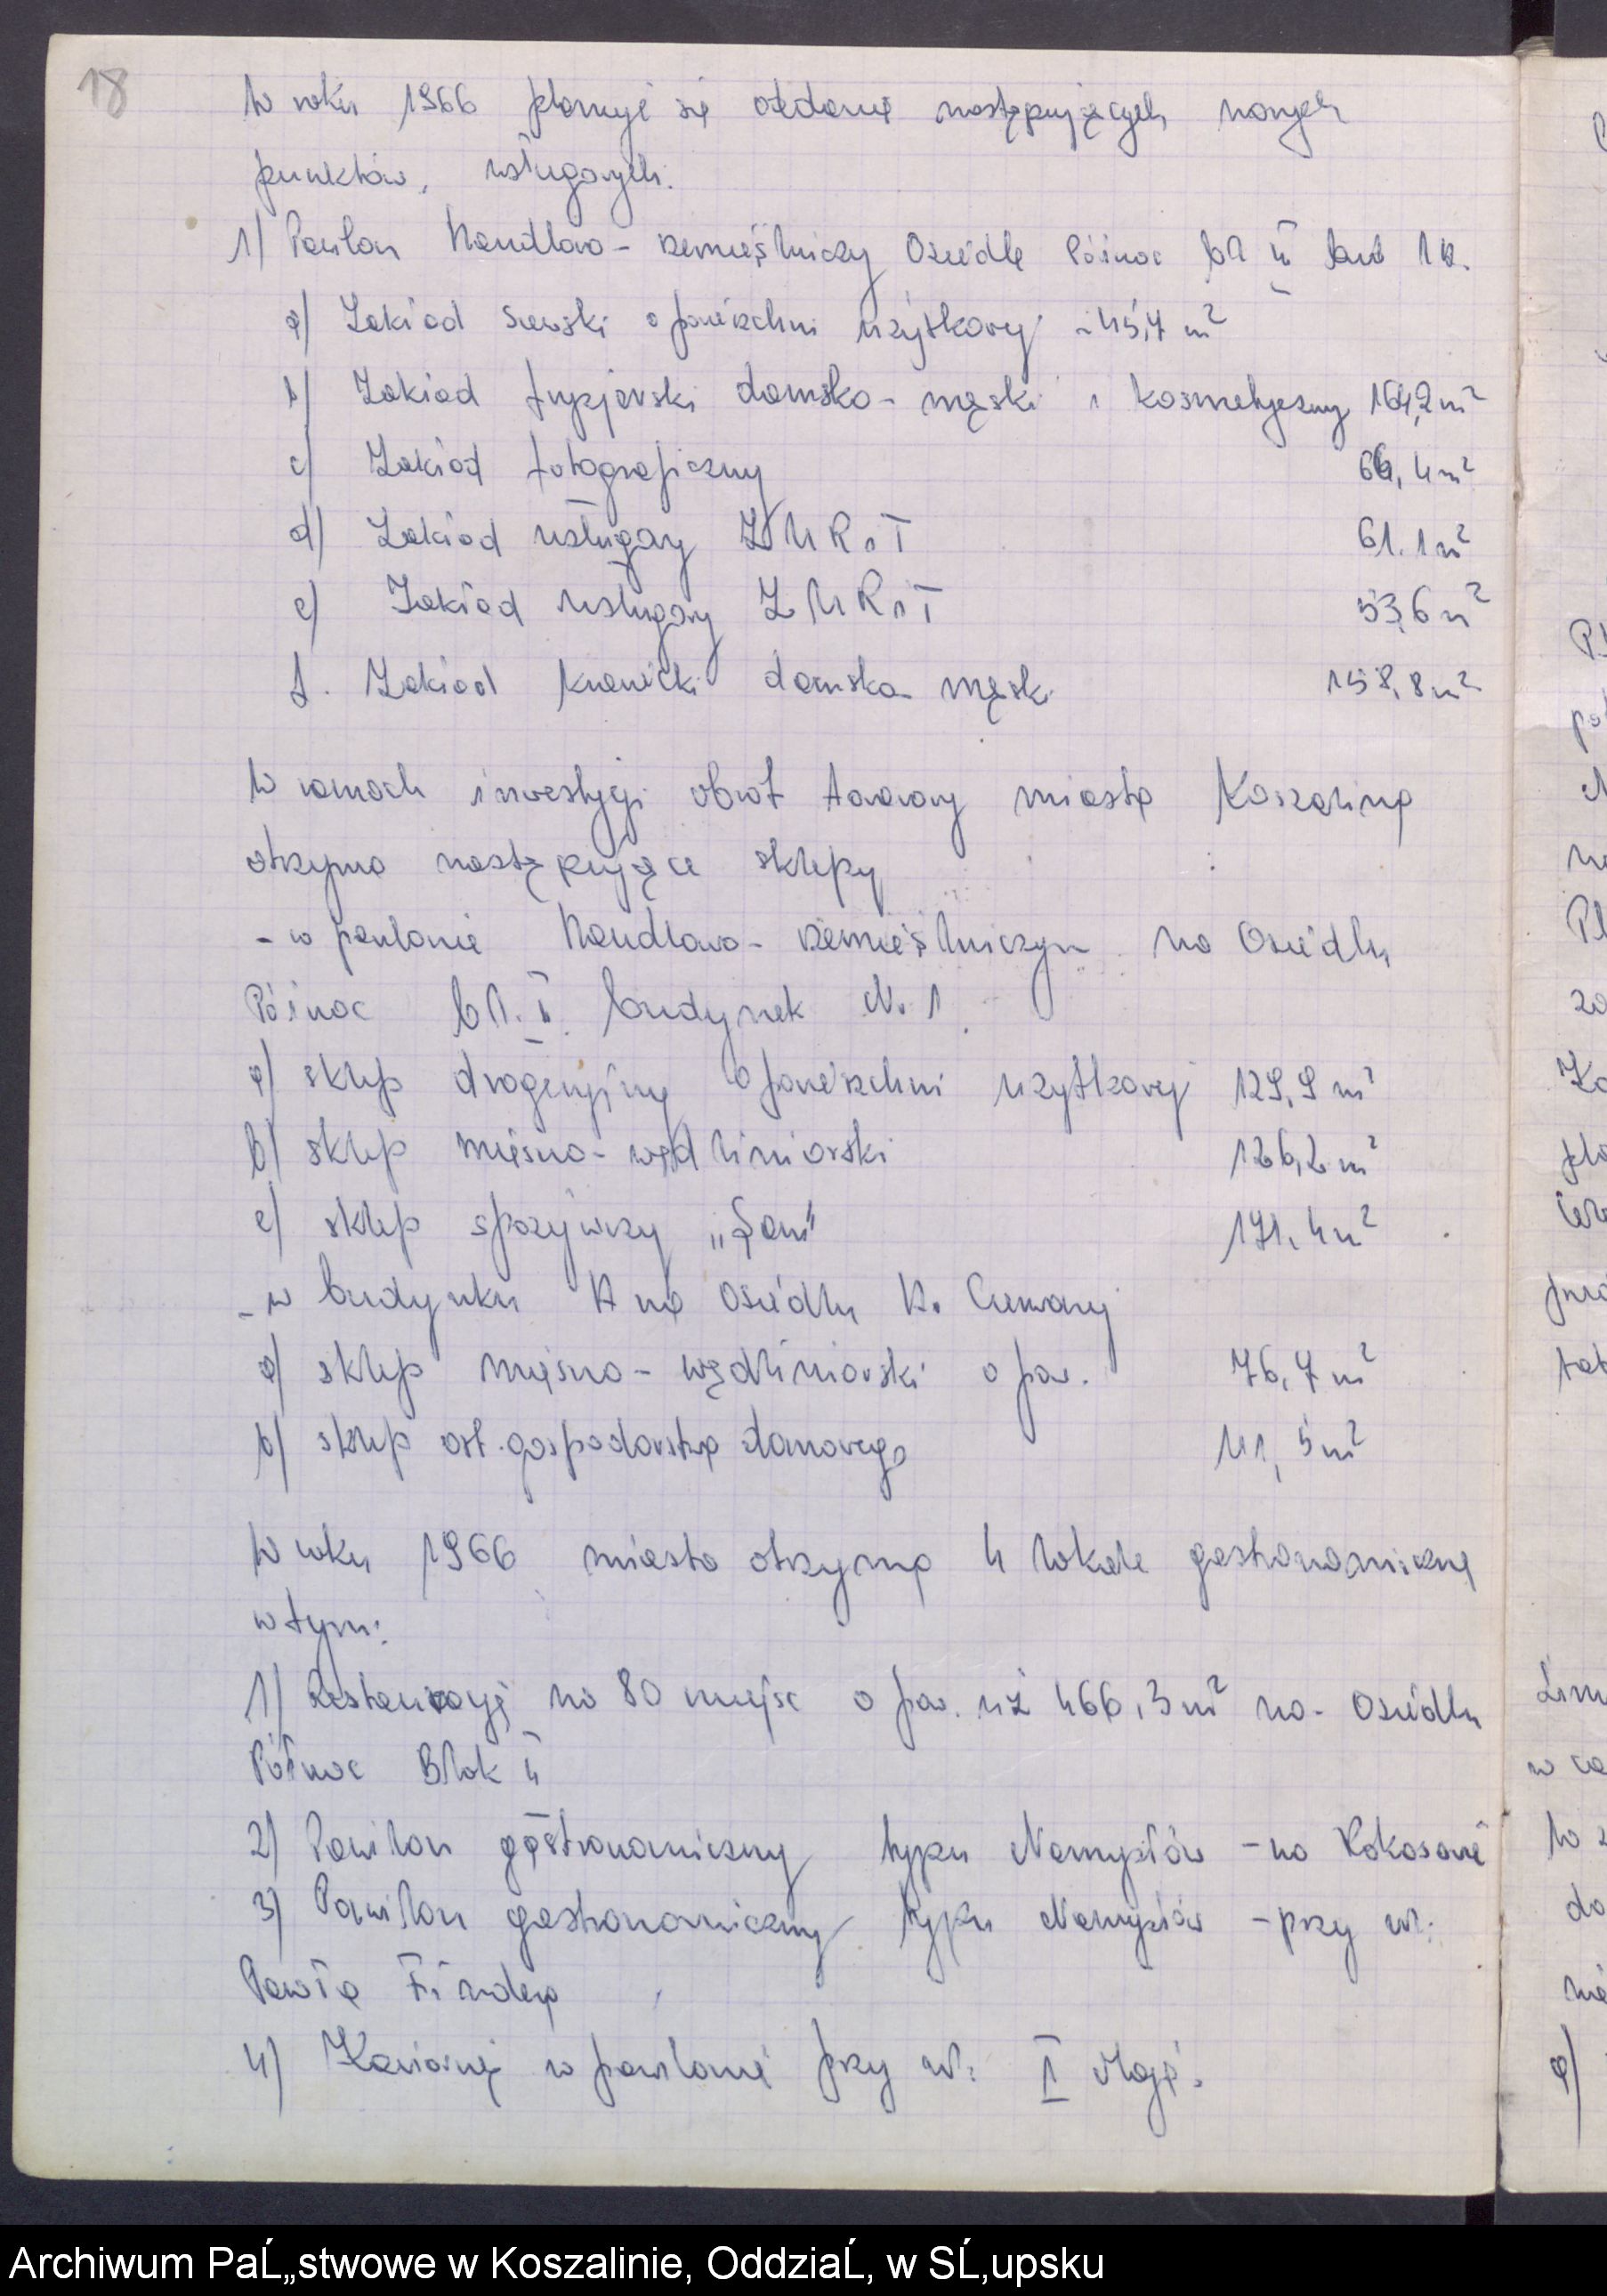 18
W roku 1966 planuje się oddanie następujących nowych
punktów usługowych.
1) Pawilon Handlowo-rzemieślniczy Osiedle Północ bl II bud 1
a) Zakład szewski o powierzchni użytkowej - 45,7 m²
b) Zakład fryzjerski damsko-męski i kosmetyczny 164,2 m²
c) Zakład fotograficzny 64,4 m²
d) Zakład usługowy ZURiT 61.1 m²
e) Zakład usługowy ZURiT 53,6 m²
f. Zakład krawiecki damsko-męski 158,8 m²
W ramach inwestycji obrót towarowy miasta Koszalina
otrzyma następujące sklepy
- w pawilonie Handlowo-rzemieślniczym na Osiedlu
Północ bl. II budynek Nr 1
a) sklep drogeryjny o powierzchni użytkowej 129,9 m²
b) sklep mięsno-wędliniarski 126,2 m²
c) sklep spożywczy „Sam" 171,4 m²
- w budynku A na Osiedlu
a) sklep mięsno-wędliniarski o pow. 76,7 m²
b) sklep art. gospodarstwa domowego 141,5 m²
W roku 1966 miasto otrzyma 4 lokale gastronomiczne
w tym:
1) Restaurację na 80 miejsc o pow. uż 466,3 m² na Osiedlu
Północ Blok II
2) Pawilon gastronomiczny typu Namysłów - na Rokosowie
3) Pawilon gastronomiczny typu Namysłów - przy ul.
Pawła Findera
4) Kawiarnię w pawilonie przy ul. I Maja.
Archiwum PaĹ„stwowe w Koszalinie, OddziaĹ‚ w SĹ‚upsku